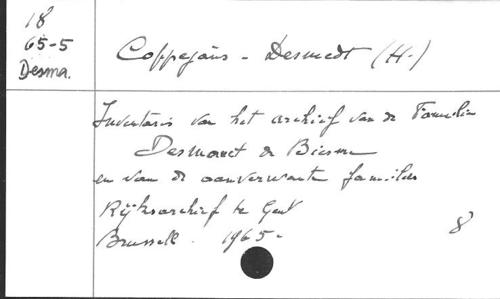 18
65-5
Desma.
Coppejans - Desmedt (H.)
Inventaris van het archief van de Familie
Desmanet de Biesme
en van de aanverwante families
Rijksarchief te Gent
Brussell. 1965 -
8